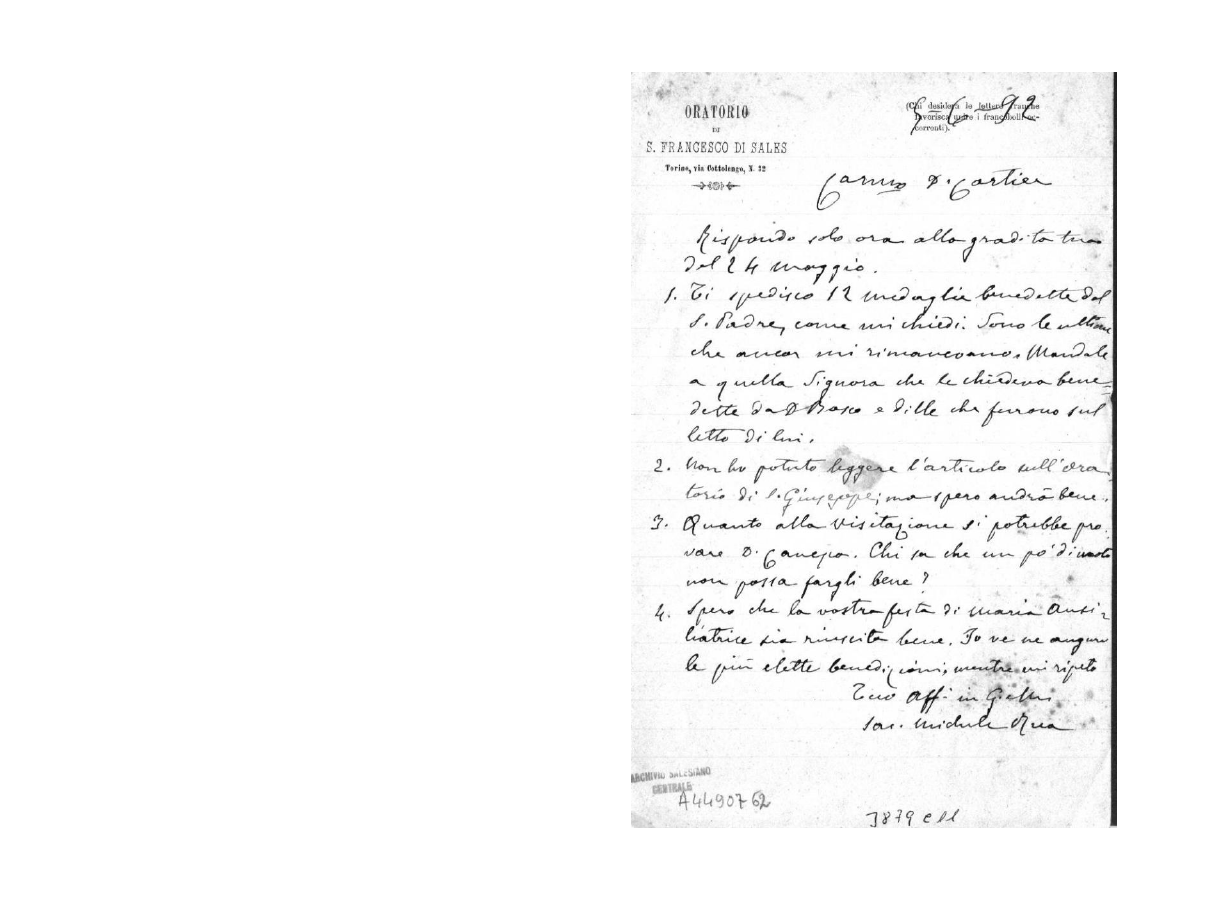 ORATORIO
DI
S. FRANCESCO DI SALES
Torino, via Cottolengo, N. 32
(Chi desidera le lettere franche
favorisca unire i francobolli oc-
correnti).
5-6-92
Carmo D. Cartier
Rispondo solo ora alla gradita tua
del 24 maggio.
1. Ti spedisco 12 medaglie benedette dal
S. Padre, come mi chiedi. Sono le ultime
che ancor mi rimanevano. Mandale
a quella Signora che le chiedeva bene=
dette da D Bosco e dille che furono sul
letto di lui.
2. Non ho potuto leggere l'articolo sull'Ora-
torio di S. Giuseppe; ma spero andrà bene.
3. Quanto alla Visitazione si potrebbe pro-
vare D. Canepa. Chi sa che un po' di moto
non possa fargli bene?
4. Spero che la vostra festa di Maria Ausi-
liatrice sia riuscita bene. Io ve ne auguro
le più elette benedizioni, mentre mi ripeto
Tuo Aff. in G. e M.
Sac. Michele Rua
ARCHIVIO SALESIANO
CENTRALE
A4490762
3879 c 11